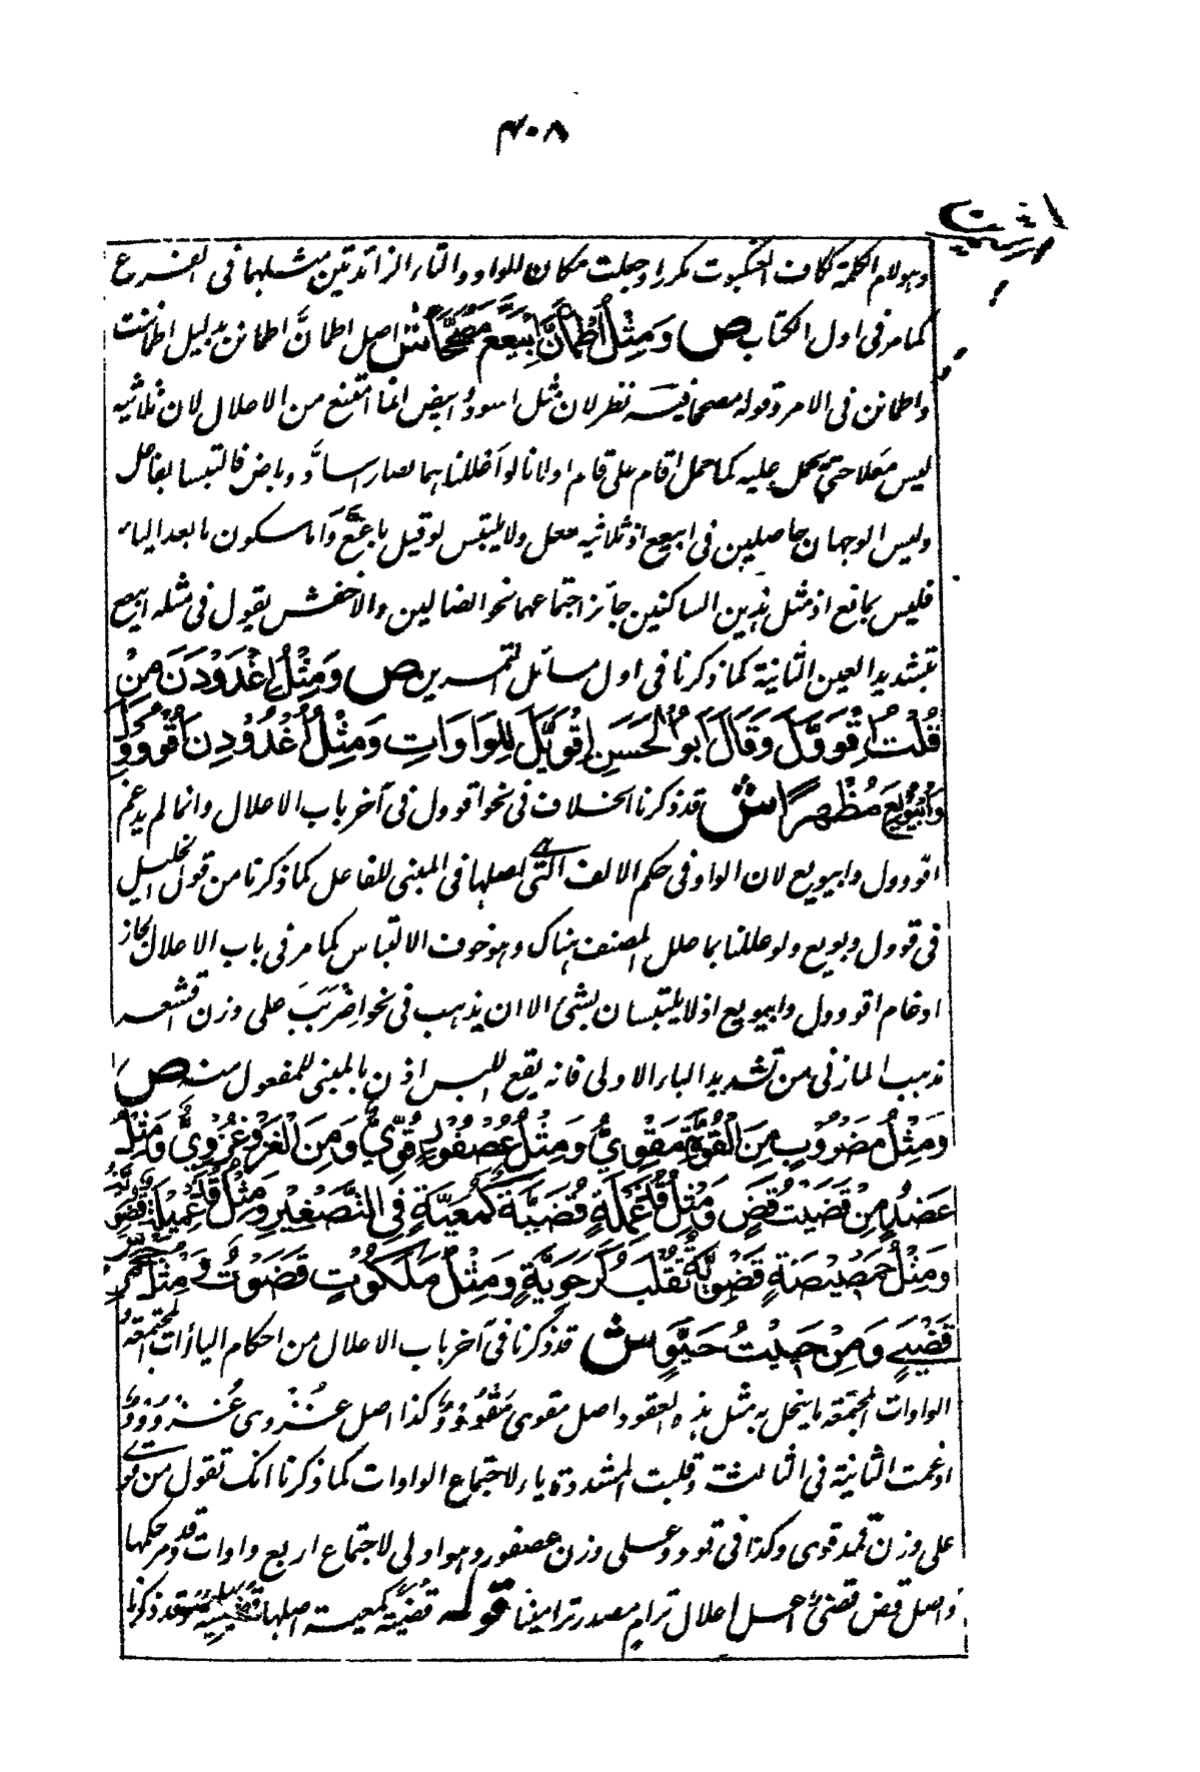 ۴۰۸
وهو لام الكلمة كاف العنكبوت مكررا وجعلت مكان للواو والتاء الزائدتين مثليهما فى الفرع
كما مر فى اول الكتاب ص وَمِثْلُ اُطْمَأَنَّ اِبْيَعَعَّ مُصَحَّحًا ش اصل اطمانَّ اطمانن بدليل اطماننت
واطمانن فى الامر وقوله مصححا فيه نظر لان مثل اسودَّ وابيض انما امتنع من الاعلال لان ثلاثيه
ليس معلا حتى يحمل عليه كما حمل اقام على قام اولانا لو اعللناهما لصارا سادَّ وباضّ فالتبسا بفاعل
وليس الوجهان حاصلين فى ابيعع اذ ثلاثيه معل ولا يلتبس لو قيل باععَّ واما سكون ما بعد الياء
فليس بمانع اذ مثل هذين الساكنين جائز اجتماعهما نحو الضالين والاخفش يقول فى مثله ابيعع
بتشديد العين الثانية كما ذكرنا فى اول مسائل التمرين ص وَمِثْلُ اِغْدَوْدَنَ مِنْ
قُلْتُ اِقْوَوَّلَ وَقَالَ اَبُو الْحَسَنِ اِقْوَيَّلَ لِلْوَاوَاتِ وَمِثْلُ اُغْدُوْدِنَ اُقْوُوْوِلَ
وَاُبْيُوْيِعَ مُظْهَرًا ش قد ذكرنا الخلاف فى نحو اقوول فى آخر باب الاعلال وانما لم يدغم
اقوول وابيويع لان الواو فى حكم الالف التى اصلها فى المبنى للفاعل كما ذكرنا من قول الخليل
فى قوول وبويع ولو عللنا بما علل المصنف هناك وهو خوف الالتباس كما مر فى باب الاعلال لجاز
ادغام اقوول وابيويع اذ لا يلتبسان بشئ الا ان يذهب فى نحو اضْرَبَّبَ على وزن اقشعر
مذهب المازنى من تشديد الباء الاولى فانه يقع اللبس اذن بالمبنى للمفعول منه ص
وَمِثْلُ مَضْرُوْبٍ مِنَ الْقُوَّةِ مَقْوِيٌّ وَمِثْلُ عُصْفُوْرٍ قُوِّيٌّ وَمِنَ الْغَزْوِ غُزْوِيٌّ وَمِثْلُ
عَضُدٍ مِنْ قَضَيْتُ قَضٍ وَمِثْلُ قُذَعْمِلَةٍ قُضَيَّةٌ كَمُعَيَّةٍ فِى التَّصْغِيْرِ وَمِثْلُ قُذَعْمِيْلَةٍ قُضَوِيَّةٌ
وَمِثْلُ حَمَصِيْصَةٍ قَضَوِيَّةٌ تُقْلَبُ كَرَحَوِيَّةٍ وَمِثْلُ مَلَكُوْتٍ قَضَوُوْتٌ وَمِثْلُ جَحْمَرِشٍ
قَضْيَيٍ وَمِنْ حَيِيْتُ حَيَّوٍ ش قد ذكرنا فى آخر باب الاعلال من احكام الياآت المجتمعة
الواوات المجتمعة ما ينحل به مثل هذه العقود اصل مقوى مَقْوُوْوٌ وكذا اصل غُزْوى غُزْوُوْوٌ
ادغمت الثانية فى الثالثة وقلبت المشددة ياء لاجتماع الواوات كما ذكرنا انك تقول من قوى
على وزن قمد قوى وكذا فى قوو وعلى وزن عصفور وهو اولى لاجتماع اربع واوات وقد مر حكمها
واصل قض قضىٌ اعل اعلال ترام مصدر ترامينا قوله قضيّة كمعية اصلها قضييية وقد ذكرنا